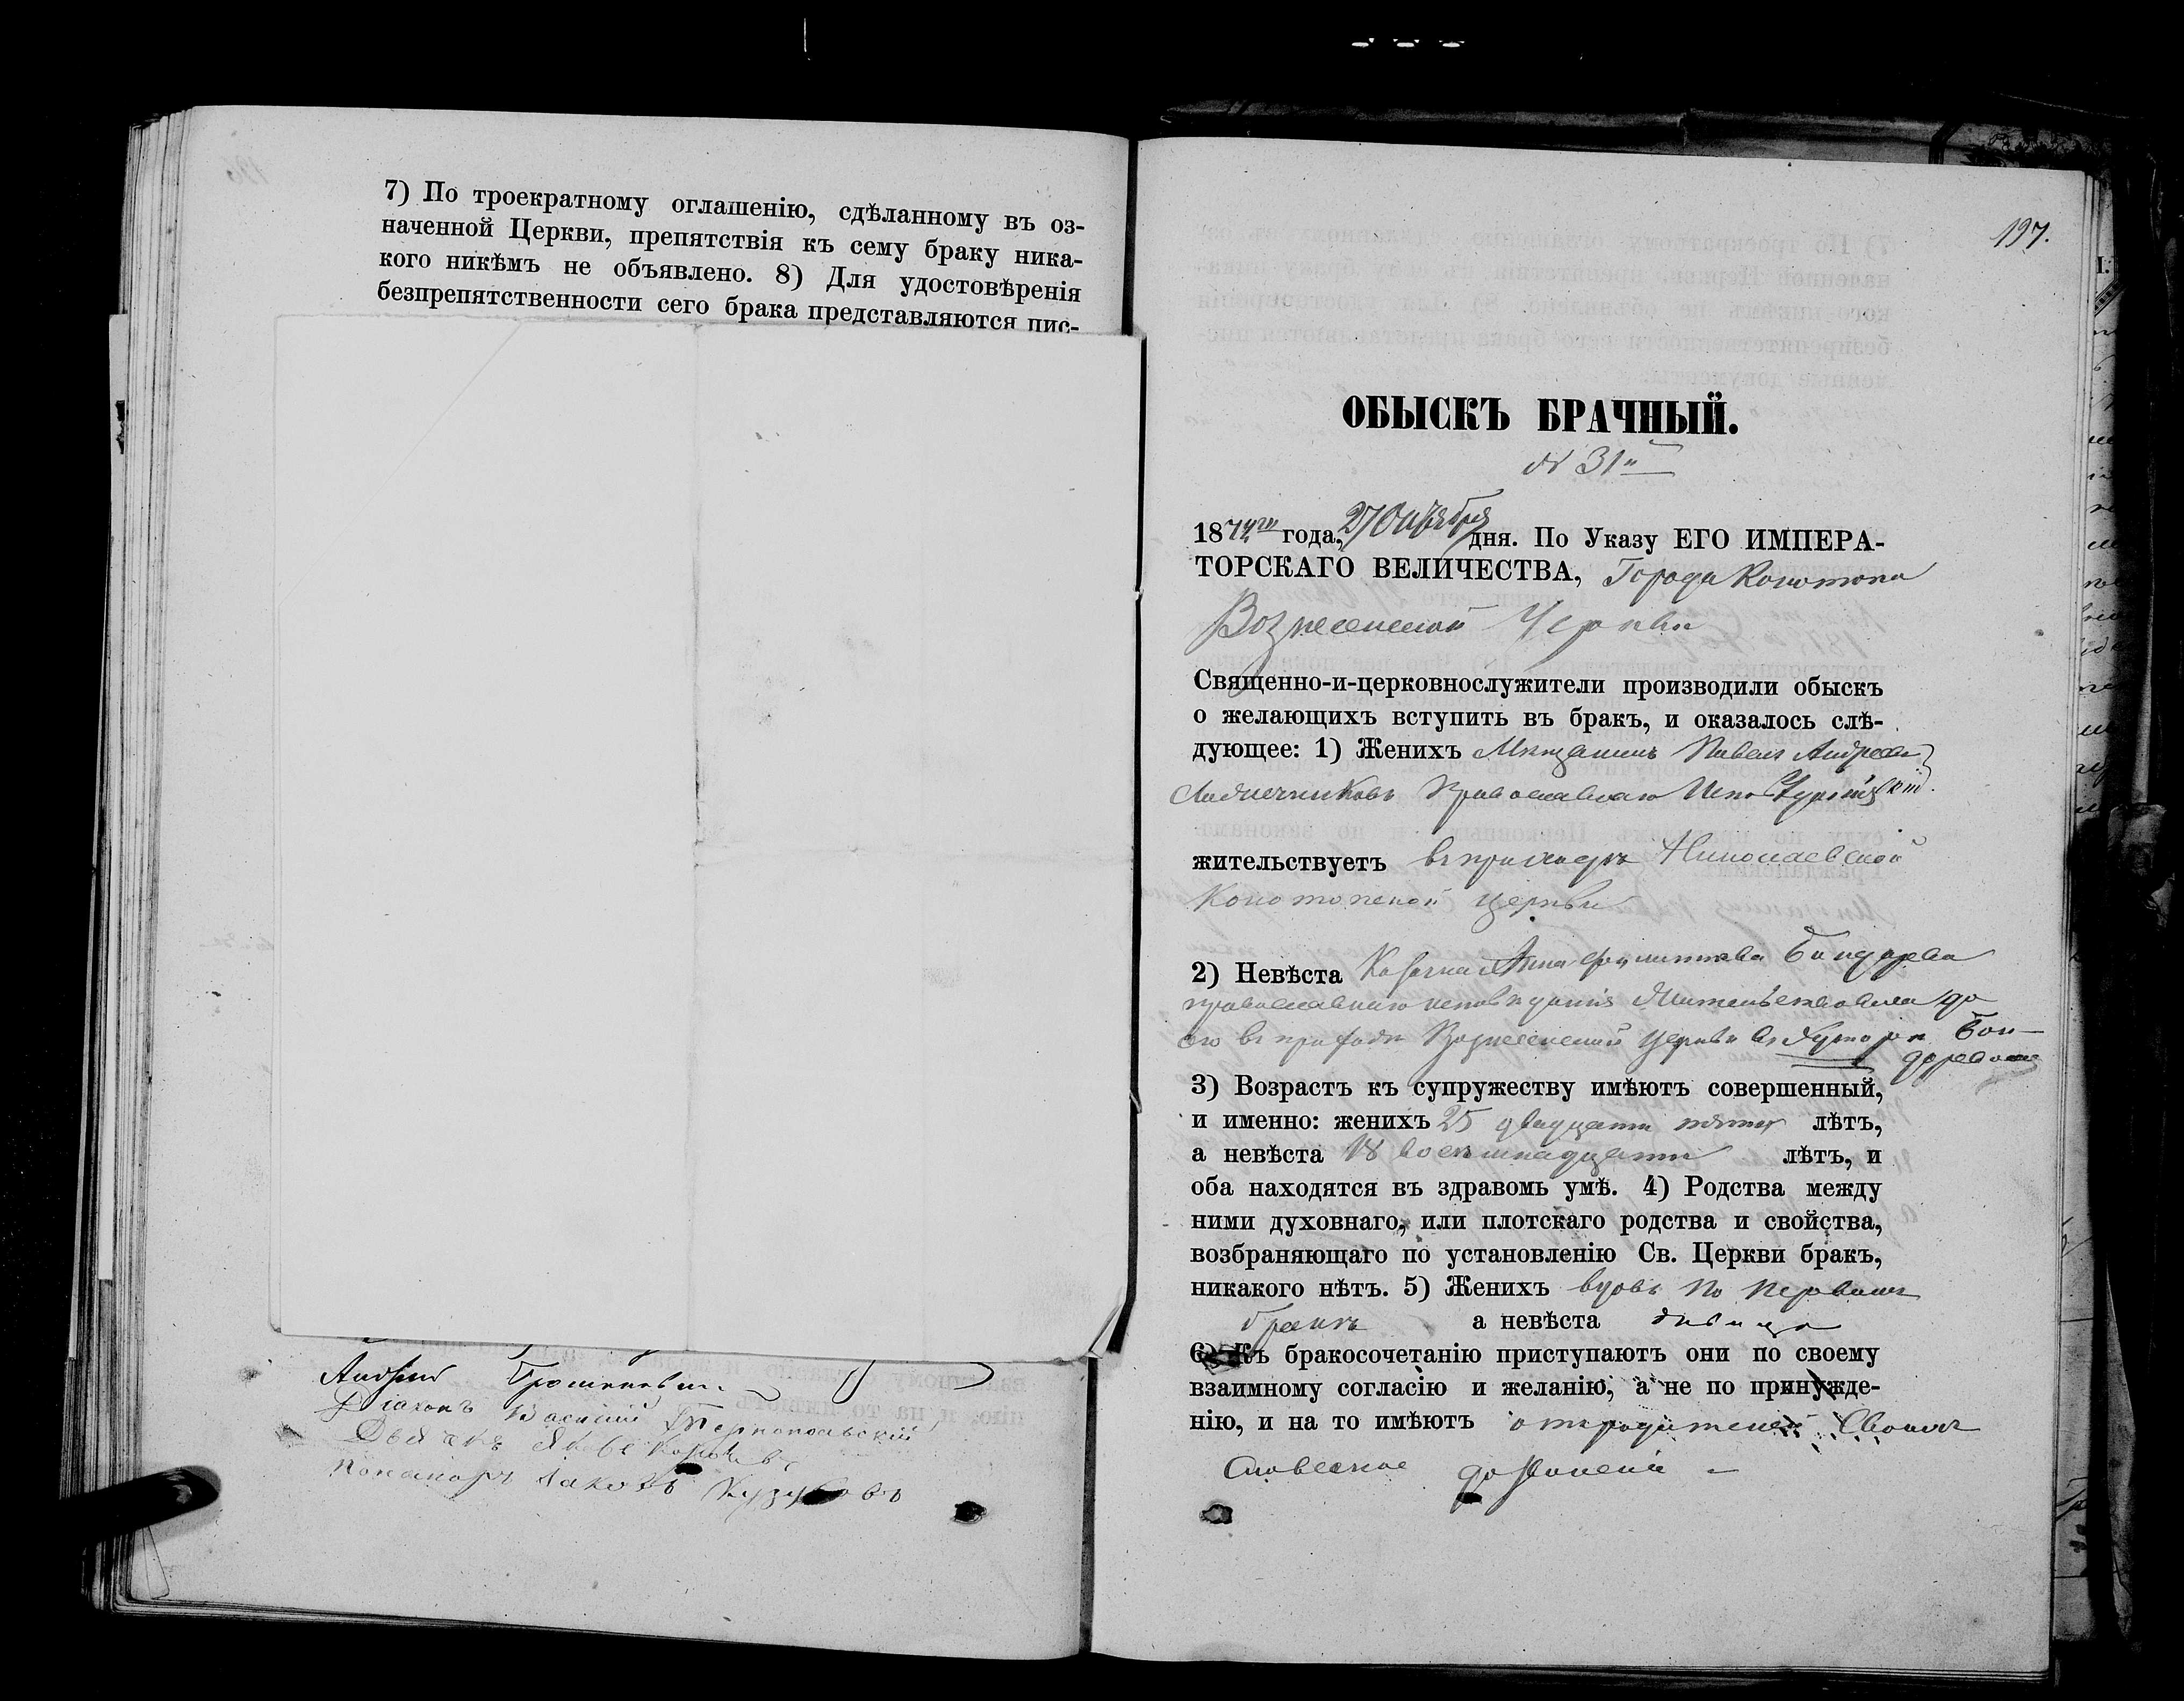 7) По троекратному оглашенію, сдѣланному въ оз-
наченной Церкви, препятствія къ сему браку ника-
кого никѣмъ не объявлено. 8) Для удостовѣренія
безпрепятственности сего брака представляются пис-
Андрей
Діаконъ Василій Тернопольскій
Дьячекъ Яковъ
Пономарь Іаковъ
197.
ОБЫСКЪ БРАЧНЫЙ.
№ 31й
1874го года, 27 Октября дня. По Указу ЕГО ИМПЕРА-
ТОРСКАГО ВЕЛИЧЕСТВА, Города Конотопа
Вознесенской Церкви
Священно-и-церковнослужители производили обыскъ
о желающихъ вступить въ бракъ, и оказалось слѣ-
дующее: 1) Женихъ Мѣщанинъ Павелъ Андреевъ
Православнаго
жительствуетъ въ приходѣ Николаевской
Конотопской церкви
2) Невѣста Козачка Анна Филиппова Бондарева
православнаго исповѣданія Жительствовала до
сего въ приходѣ Вознесенской церкви въ Хуторѣ Бон-
3) Возрастъ къ супружеству имѣютъ совершенный,
и именно: женихъ 25 двадцати пяти лѣтъ,
а невѣста 18 восемнадцати лѣтъ, и
оба находятся въ здравомъ умѣ. 4) Родства между
ними духовнаго, или плотскаго родства и свойства,
возбраняющаго по установленію Св. Церкви бракъ,
никакого нѣтъ. 5) Женихъ вдовъ по первомъ
бракѣ а невѣста дѣвица
6) Къ бракосочетанію приступаютъ они по своему
взаимному согласію и желанію, а не по принужде-
нію, и на то имѣютъ отъ родителей своихъ
Словесное дозволеніе